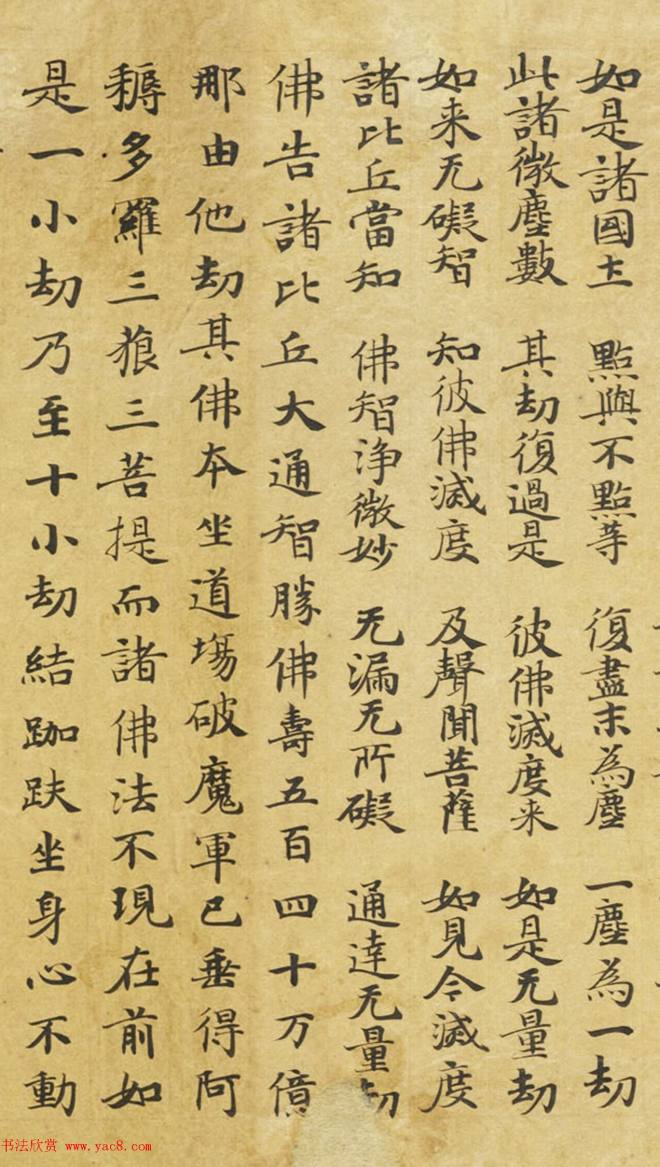 如是諸國土 點與不點等 復盡末為塵 一塵為一劫
此諸微塵數 其劫復過是 彼佛滅度来 如是无量劫
如来无礙智 知彼佛滅度 及聲聞菩薩 如見今滅度
諸比丘當知 佛智淨微妙 无漏无所礙 通達无量劫
佛告諸比丘大通智勝佛壽五百四十万億
那由他劫其佛本坐道場破魔軍已垂得阿
耨多羅三狼三菩提而諸佛法不現在前如
是一小劫乃至十小劫結跏趺坐身心不動
书法欣赏 www.yac8.com